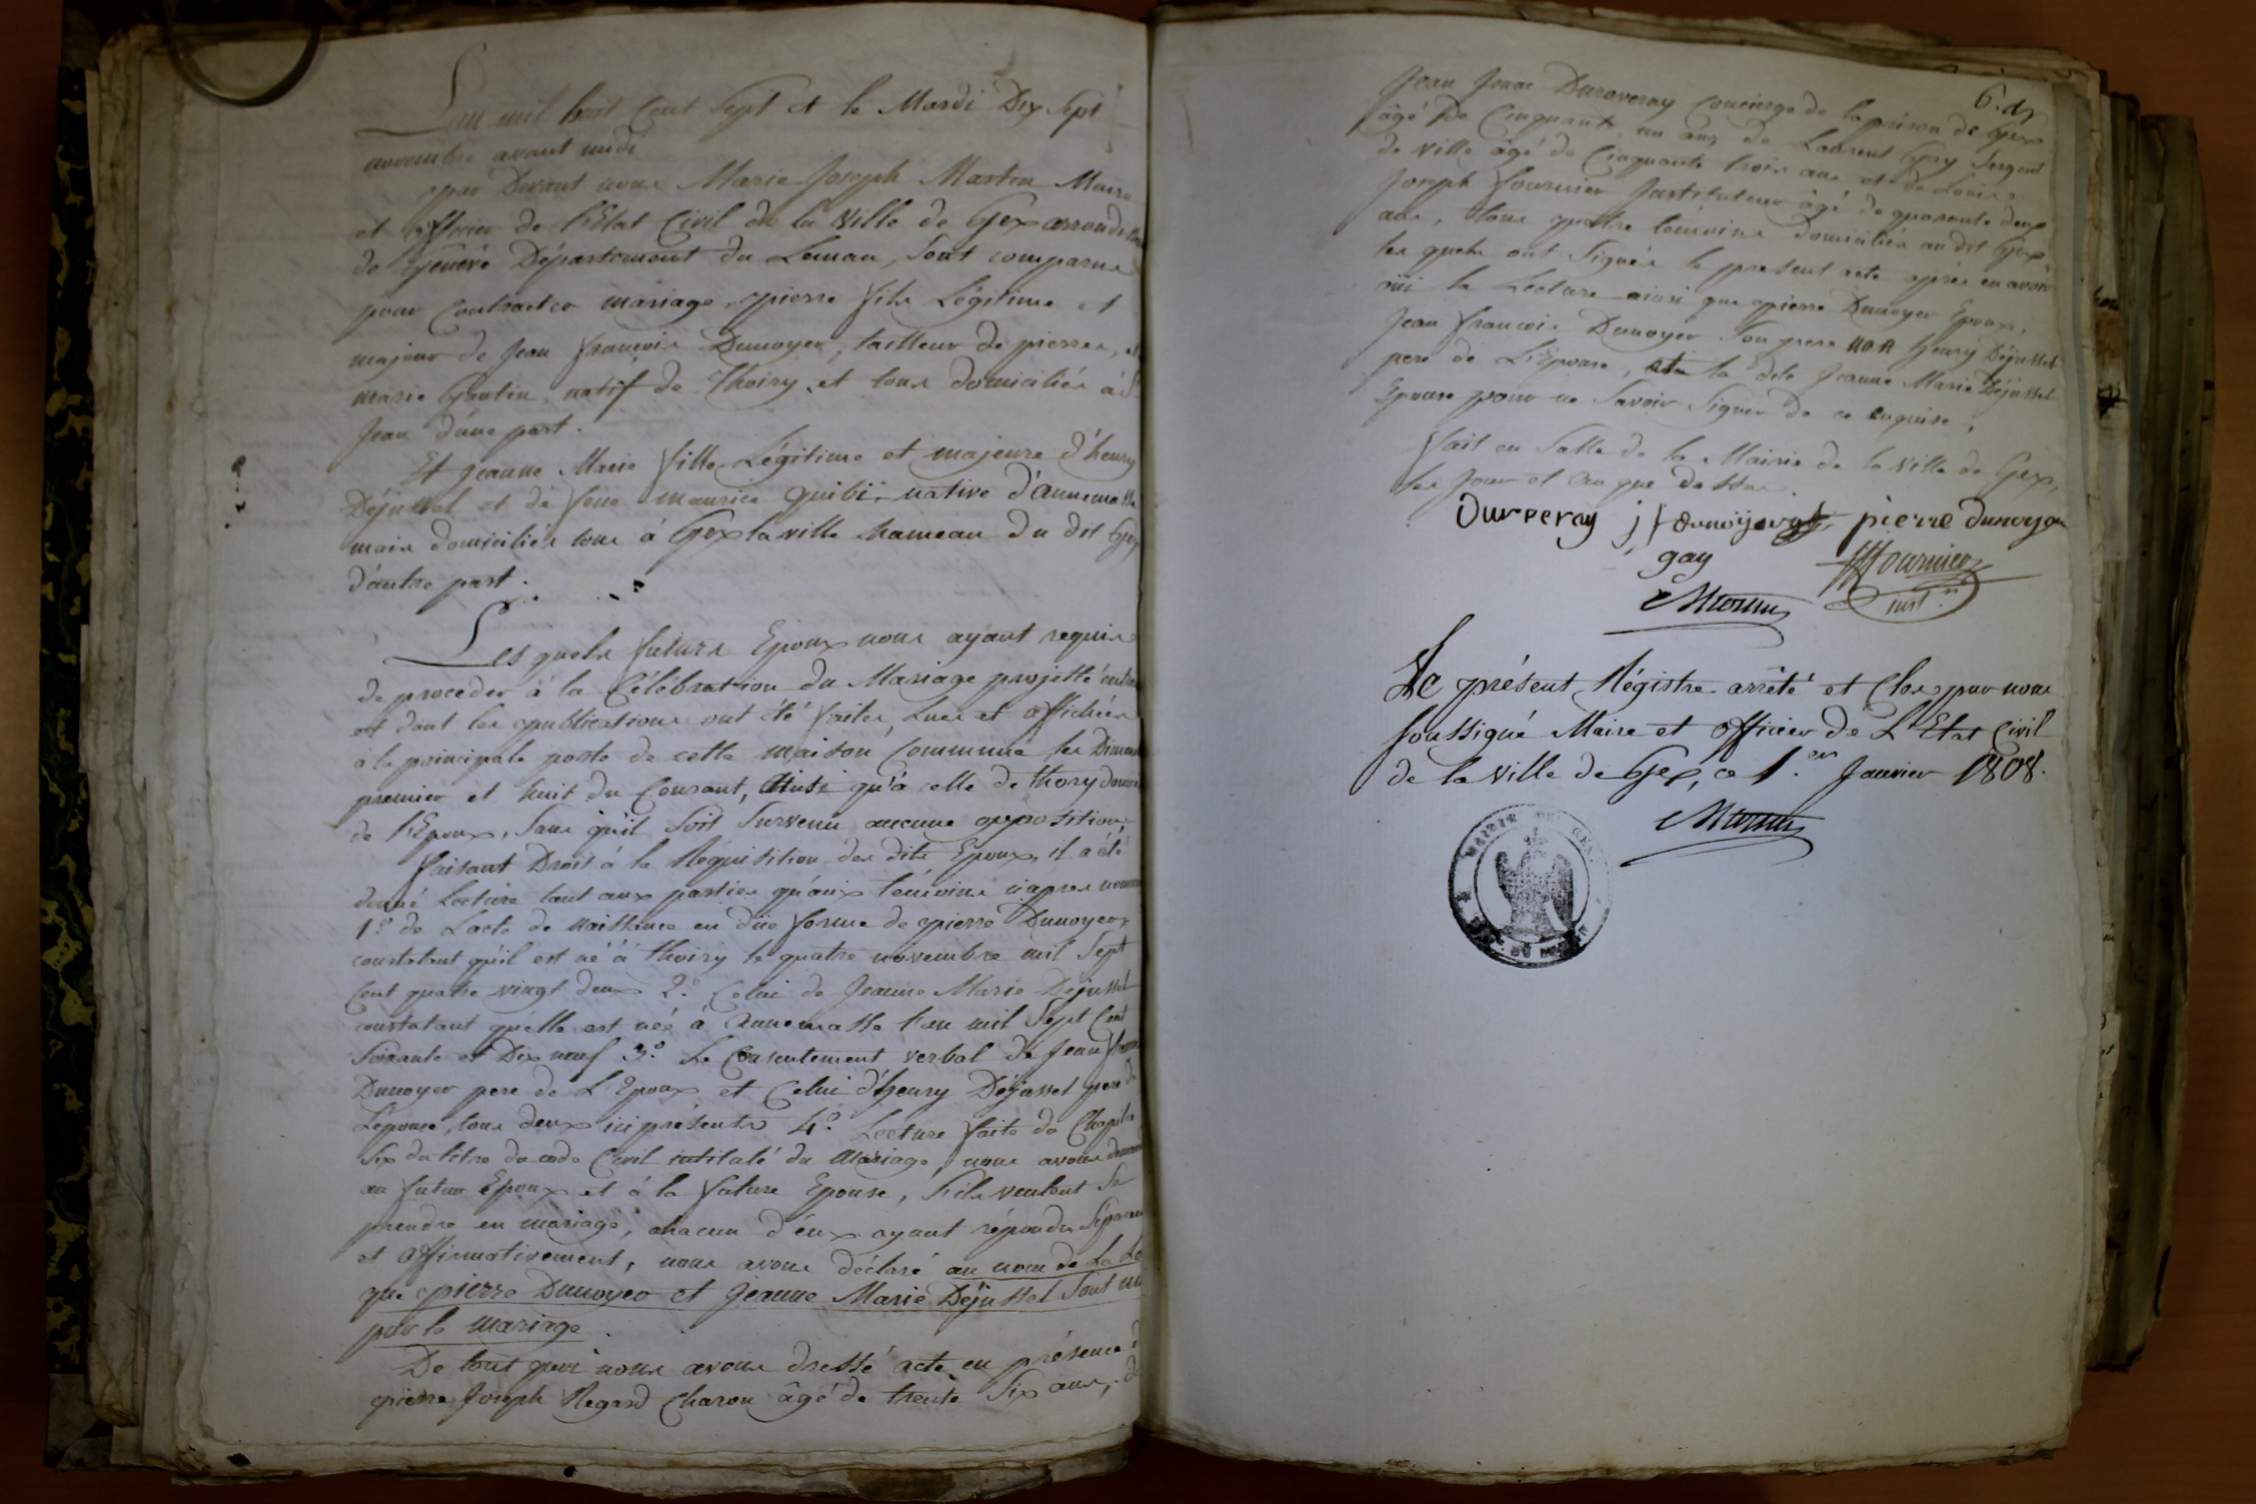 L'an mil huit Cent Sept et le Mardi Dix Sept
novembre avant midi
par Devant nous Marie Joseph Martin Maire
et officier de l'Etat Civil de la Ville de Gex arrondis
de Genève Département du Leman, Sont comparus
pour Contracter mariage, pierre fils Légitime et
majeur de Jean François Dunoyer, tailleur de pierres, et
marie Gantin natif de Thoiry et tous domiciliés à St
Jean d'une part.
Et Jeanne Marie fille Légitime et majeure d'henry
Déjussel et de feue maurice native d'annemasse
mais domiciliés tous à Gex la ville hameau du dit Gex
d'autre part.
Les quels futurs Epoux nous ayant requis
de proceder à la Célébration du Mariage projetté entre
et dont les publications ont été faites, Lues et affichées
à la principale porte de cette maison Commune les Diman
premier et huit du Courant, Ainsi qu'à celle de thoiry domic
de l'Epoux, Sans qu'il Soit Survenu aucune opposition
faisant Droit à la Réquisition des dits Epoux, il a été
donné Lecture tant aux parties qu'aux témoins ciapres nommés
1.º de Lacte de naissance en düe forme de pierre Dunoyer,
constatant qu'il est né à thoiry le quatre novembre mil Sept
Cent quatre vingt deux 2.º Celui de Jeanne Marie Déjussel
constatant qu'elle est née à annemasse l'an mil Sept Cent
Soixante et Dix neuf 3.º Le Consentement verbal de Jean fran
Dunoyer pere de L'Epoux et Celui d'henry Déjussel pere de
Lepouse, tous deux ici présents 4.º Lecture faite du Chapitre
Six du titre du code Civil intitulé du Mariage, nous avons deman
au futur Epoux et à la future Epouse, S'ils veulent Se
prendre en mariage, chacun d'eux ayant répondu Séparem
et affirmativement, nous avons déclaré au nom de la Loi
que pierre Dunoyer et Jeanne Marie Déjussel Sont un
par le mariage.
De tout quoi nous avons dressé acte en présence d
pierre Joseph Regard Charon âgé de trente Six ans, d
6. d.
Jean Duroveray Concierge de la prison de Gex
âgé De Cinquante un ans de Laurent Gay Sergent
de ville âgé de Cinquante trois ans et de Louis
Joseph fournier Instituteur âgé de quarante deux
ans, tous quatre témoins domiciliés au dit Gex
les quels ont Signés le present acte après en avoir
oui la Lecture ainsi que pierre Dunoyer Epoux,
Jean francois Dunoyer Son pere non henry Déjussel
pere de L'Epouse, la dite Jeanne Marie Déjussel
Epouse pour ne Savoir Signer de ce enquise,
fait en Salle de la Mairie de la ville de Gex,
les Jour et an que dessus.
Duroveray j f dunoyer pierre dunoyer
gay fournier
Martin inst.r
Le présent Régistre arrêté et Clos par nous
soussigné Maire et officier de L'Etat Civil
de la ville de Gex, ce 1.er Janvier 1808.
Martin
MAIRIE DE GEX